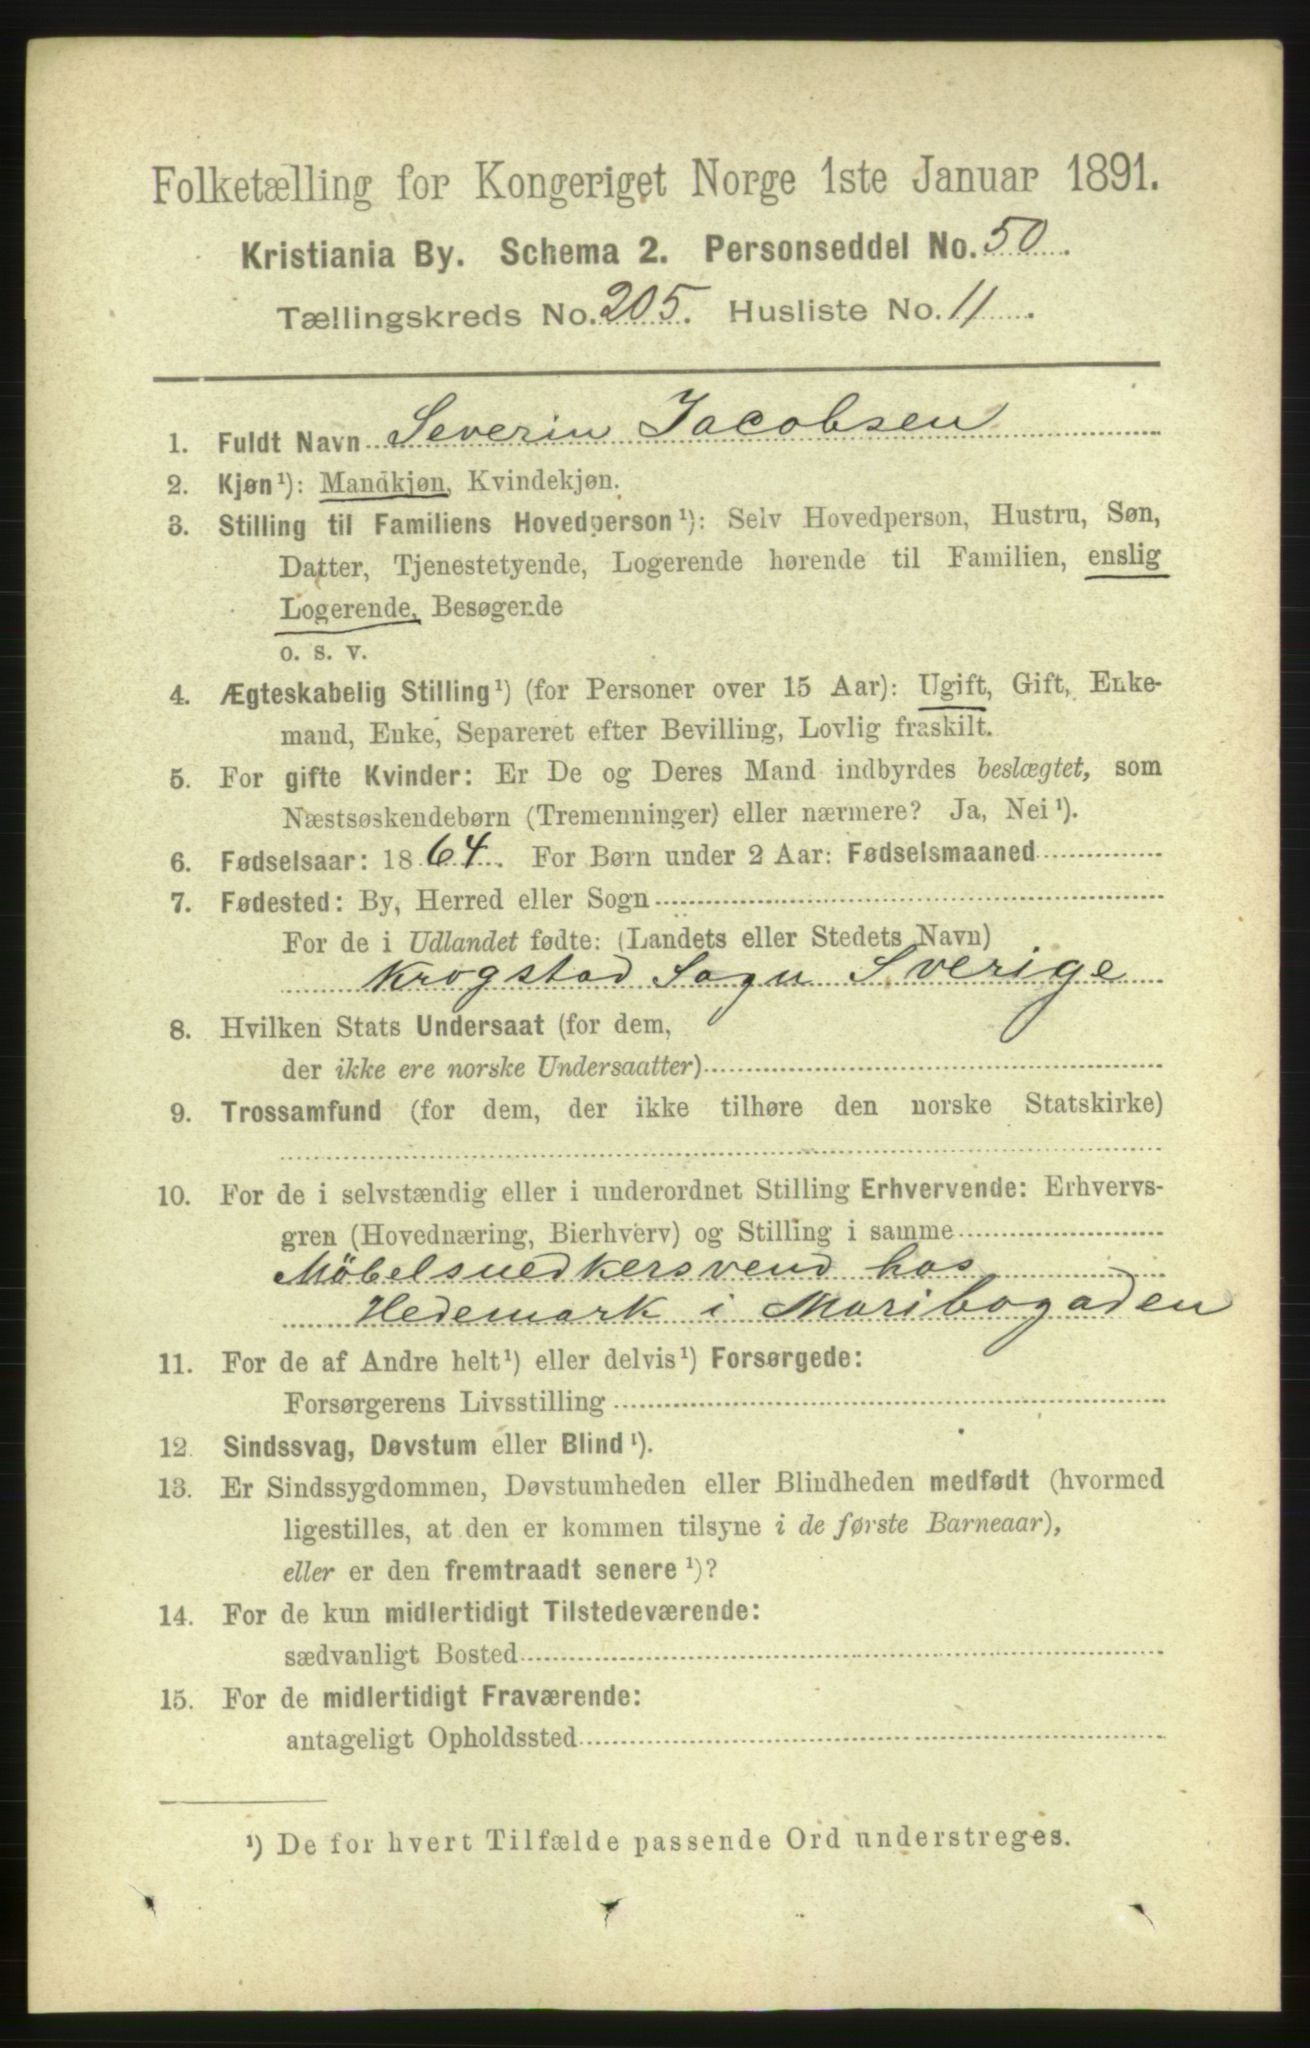 Folketælling for Kongeriget Norge 1ste Januar 1891.
Kristiania By. Schema 2. Personseddel No. 50
Tællingskreds No. 205. Husliste No. 11
1. Fuldt Navn Severin Jacobsen
2. Kjøn¹): Mandkjøn, Kvindekjøn.
3. Stilling til Familiens Hovedperson¹): Selv Hovedperson, Hustru, Søn,
Datter, Tjenestetyende, Logerende hørende til Familien, enslig
Logerende, Besøgende
o. s. v.
4. Ægteskabelig Stilling¹) (for Personer over 15 Aar): Ugift, Gift, Enke-
mand, Enke, Separeret efter Bevilling, Lovlig fraskilt.
5. For gifte Kvinder: Er De og Deres Mand indbyrdes beslægtet, som
Næstsøskendebørn (Tremenninger) eller nærmere? Ja, Nei¹).
6. Fødselsaar: 1864. For Børn under 2 Aar: Fødselsmaaned
7. Fødested: By, Herred eller Sogn
For de i Udlandet fødte: (Landets eller Stedets Navn)
Krogstad Sogn Sverige
8. Hvilken Stats Undersaat (for dem,
der ikke ere norske Undersaatter)
9. Trossamfund (for dem, der ikke tilhøre den norske Statskirke)
10. For de i selvstændig eller i underordnet Stilling Erhvervende: Erhvervs-
gren (Hovednæring, Bierhverv) og Stilling i samme
Möbelsnedkersvend hos
Hedemark i Maribogaden
11. For de af Andre helt¹) eller delvis¹) Forsørgede:
Forsørgerens Livsstilling
12. Sindssvag, Døvstum eller Blind¹).
13. Er Sindssygdommen, Døvstumheden eller Blindheden medfødt (hvormed
ligestilles, at den er kommen tilsyne i de første Barneaar),
eller er den fremtraadt senere¹)?
14. For de kun midlertidigt Tilstedeværende:
sædvanligt Bosted
15. For de midlertidigt Fraværende:
antageligt Opholdssted
¹) De for hvert Tilfælde passende Ord understreges.